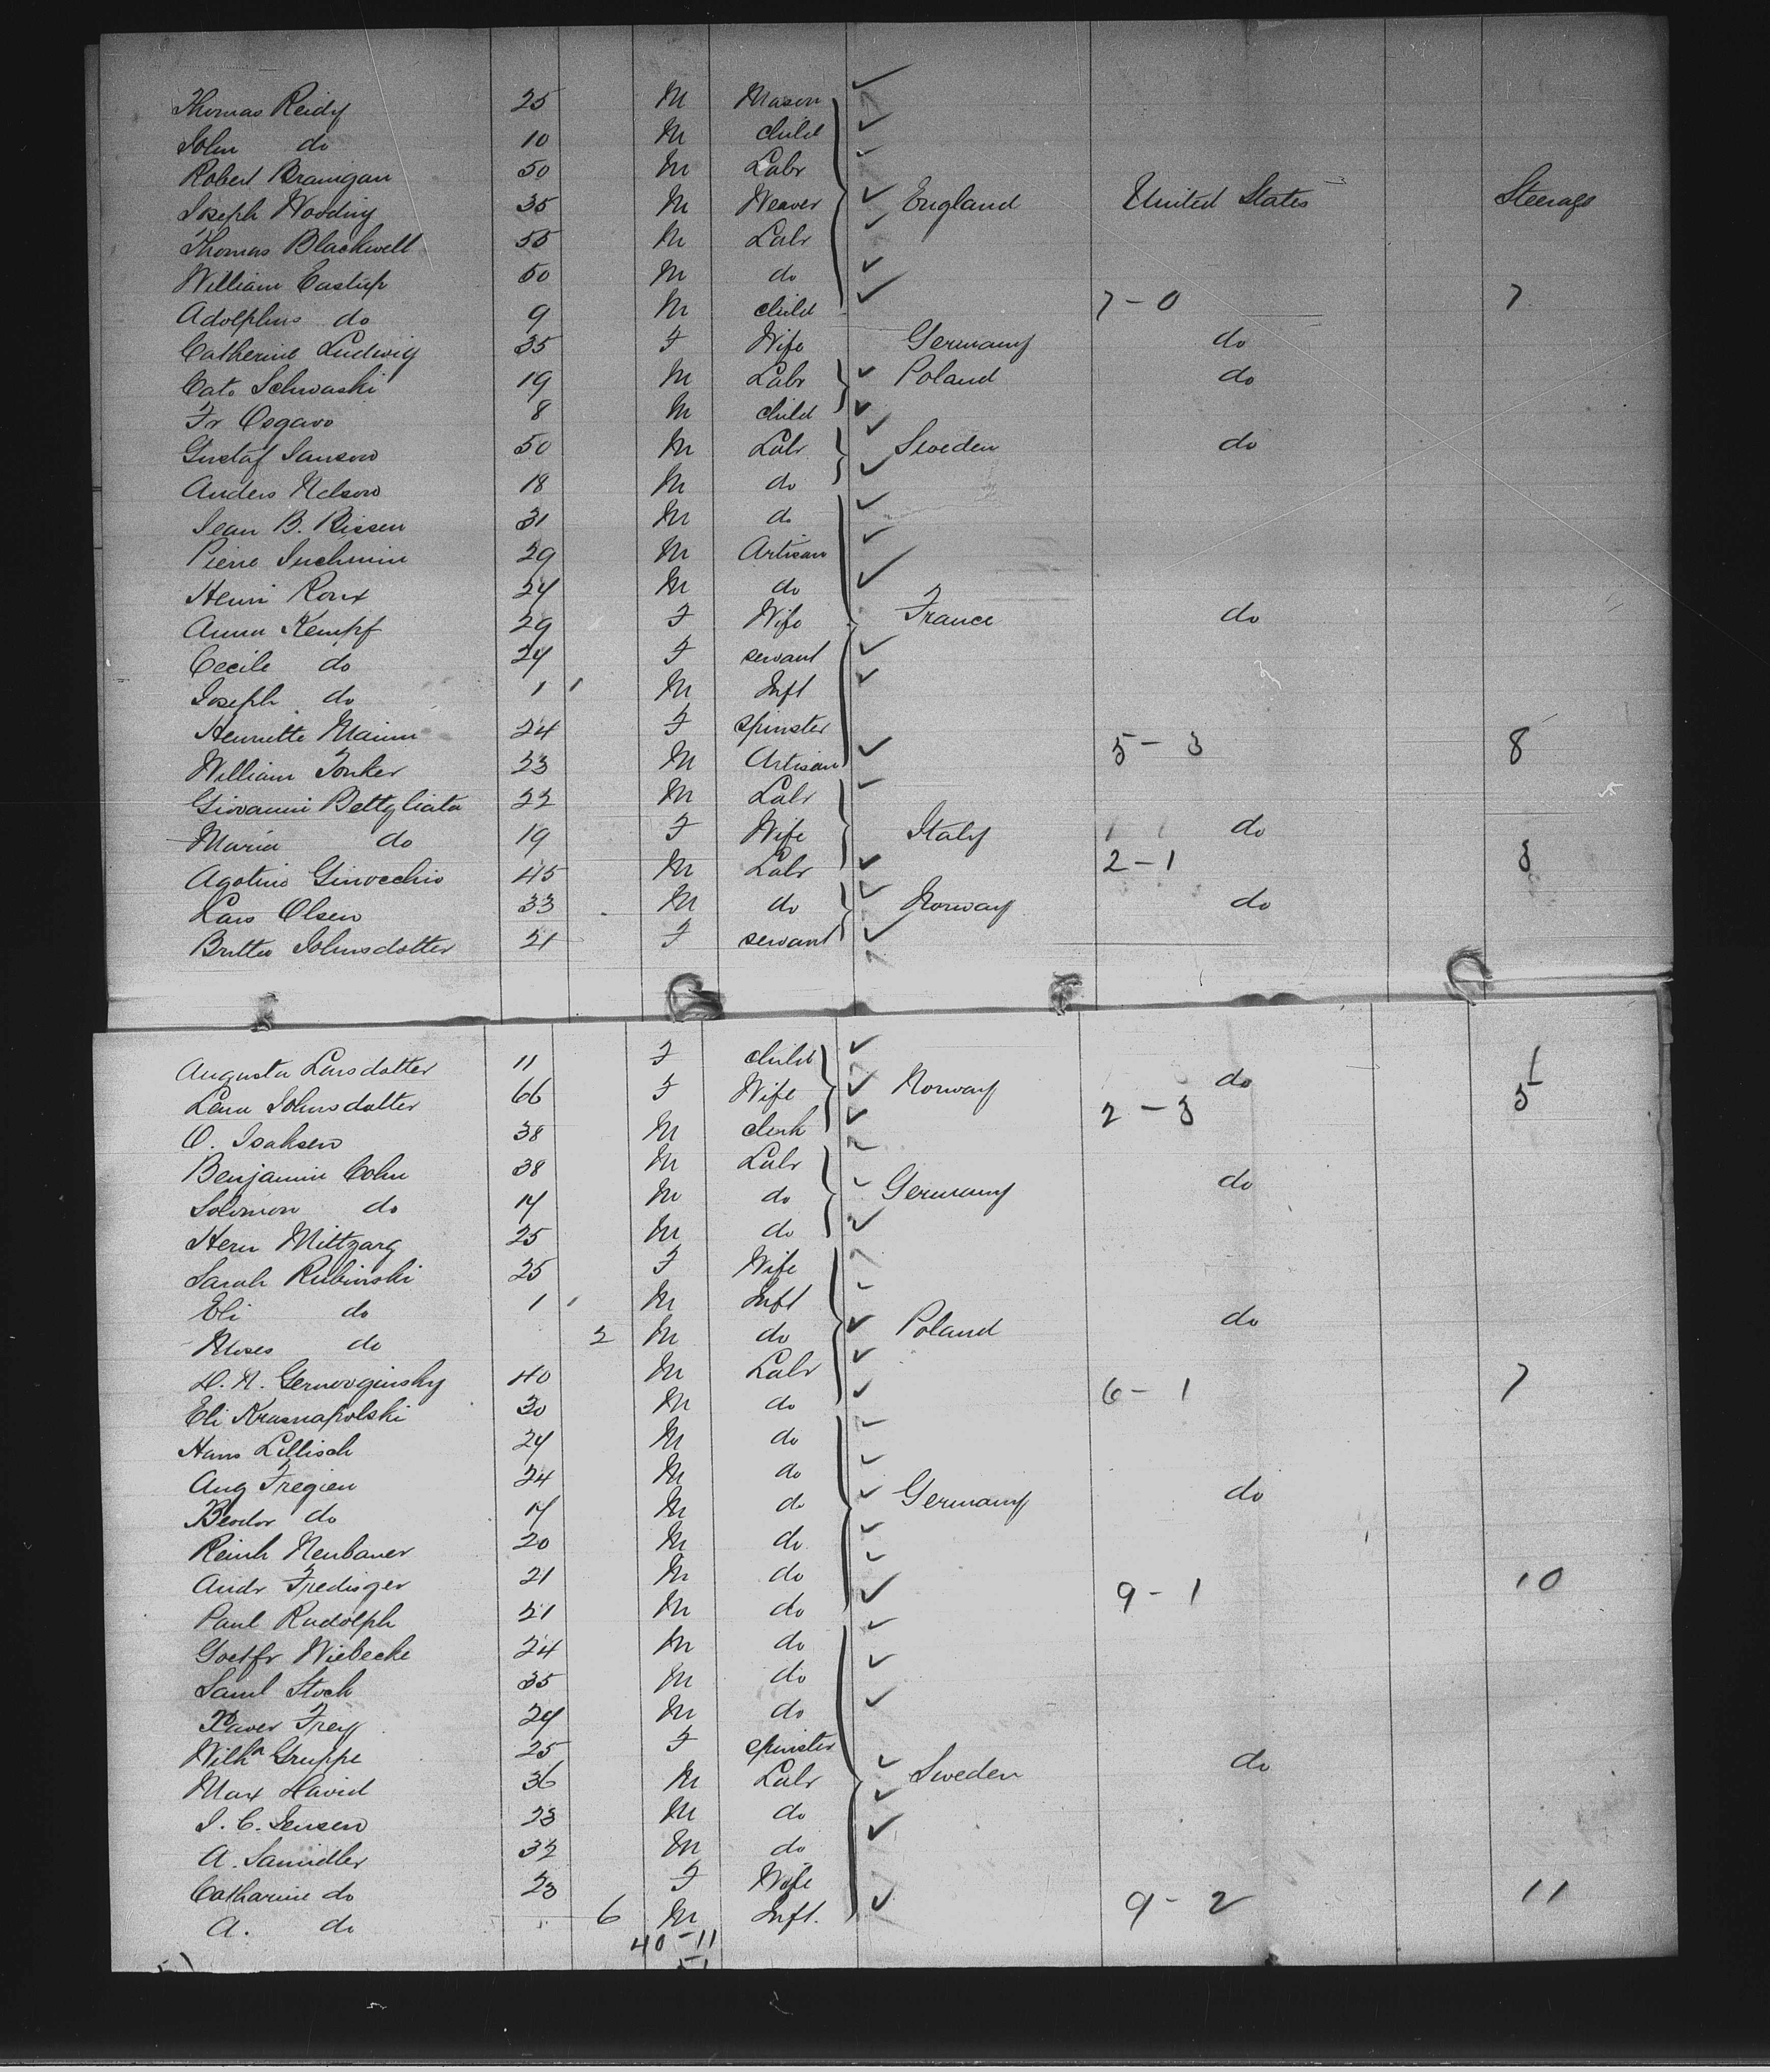 Thomas Reidy 25 M Mason
John do 10 M child
Robert Branigan 50 M Labr
Joseph Wooding 35 M Weaver England United States Steerage
Thomas Blackwell 55 M Labr
William Eastup 50 M do
Adolphus do 9 M child 7-0 7
Catherine Ludwig 35 F Wife Germany do
Cato Schwaski 19 M Labr Poland do
Fr 8 M child
Gustaf Janson 50 M Labr Sweden do
Anders Nelson 18 M do
Jean B. Rissen 31 M do
Pierre 29 M Artisan
Henri Roux 24 M do
Anna Kempf 29 F Wife France do
Cecile do 24 F servant
Joseph do 1 M Inft
Henriette 24 F spinster
William Jonker 23 M Artisan 5-3 8
Giovanni Bettgliata 22 M Labr
Maria do 19 F Wife Italy do
Agotino Ginocchio 45 M Labr 2-1 3
Lars Olsen 33 M do Norway do
Britta Johnsdotter 21 F servant
Augusta Larsdotter 11 F child 1
Lena Johnsdotter 66 F Wife Norway do 5
O. Isaksen 38 M clerk 2-3
Benjamin Cohn 38 M Labr
Solomon do 14 M do Germany do
Hern Miltzarg 25 M do
Sarah Rubinski 25 F Wife
Eli do 1 M Inft
Moses do 2 M do Poland do
40 M Labr
Eli Krasnapolski 30 M do 6-1 7
Hans Lillisch 24 M do
Aug Fregien 24 M do
do 14 M do Germany do
Reinh Neubauer 20 M do
Andr Fredisger 21 M do
Paul Rudolph 21 M do 9-1 10
Gottfr Wiebecke 24 M do
Saml Stock 35 M do
Xaver Frey 24 M do
Wilhª Gruppe 25 F spinster
Max David 36 M Labr Sweden do
J. C. Jensen 23 M do
A. Samidler 32 M do
Catharine do 23 F Wife
A. do 6 M Inft. 9-2 11
40-11
51